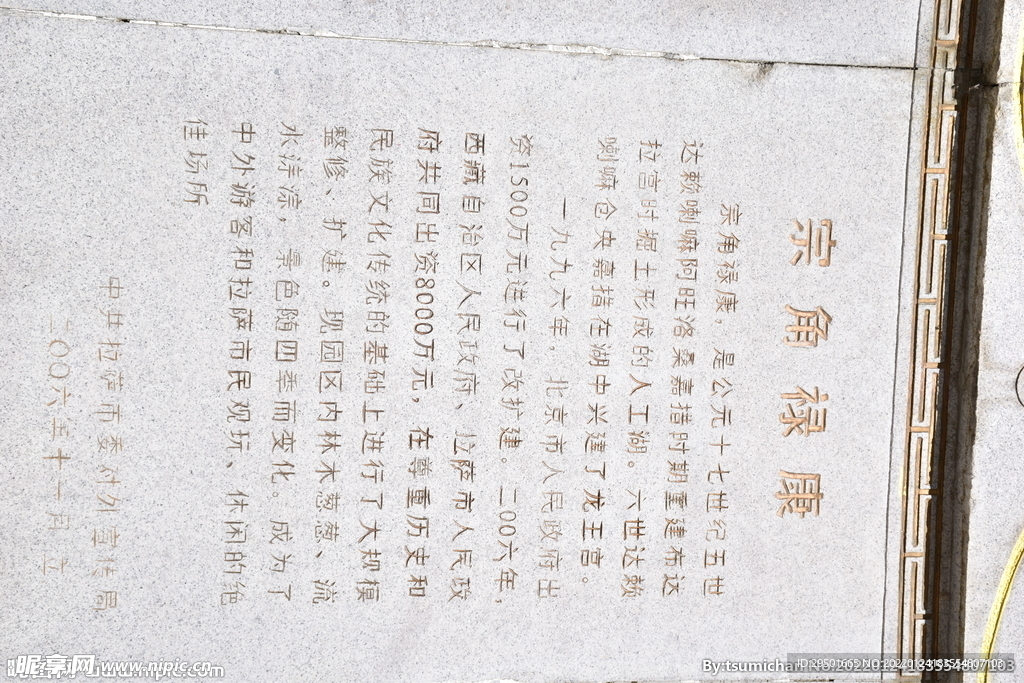 宗角禄康
宗角禄康，是公元十七世纪五世
达赖喇嘛阿旺洛桑嘉措时期重建布达
拉宫时掘土形成的人工湖。六世达赖
喇嘛仓央嘉措在湖中兴建了龙王宫。
一九九六年，北京市人民政府出
资1500万元进行了改扩建。二00六年，
西藏自治区人民政府、拉萨市人民政
府共同出资8000万元，在尊重历史和
民族文化传统的基础上进行了大规模
整修、扩建。现园区内林木葱葱、流
水淙淙，景色随四季而变化。成为了
中外游客和拉萨市民观玩、休闲的绝
佳场所
中共拉萨市委对外宣传局
二00六年十一月 立
昵享网 www.nipic.cn